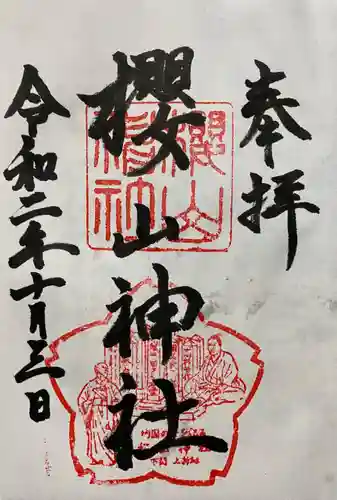 奉拝
櫻山神社
櫻山神社
令和二年十月三日